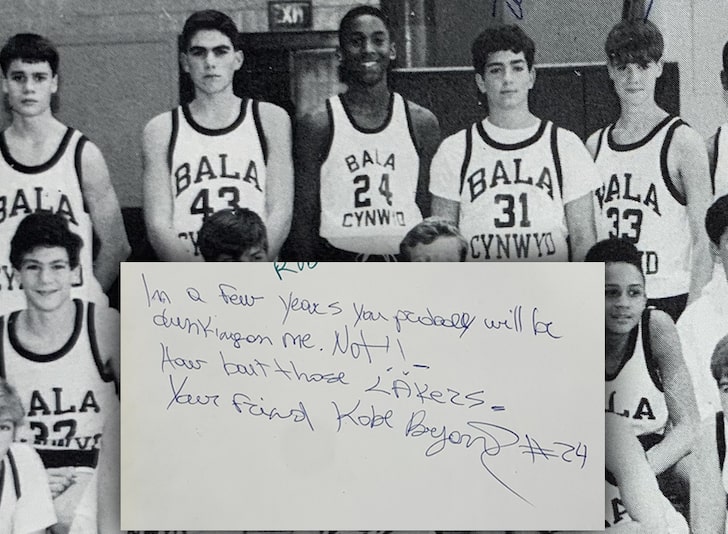 EXIT
BALA
BALA
43
BALA
24
CYNWYD
BALA
31
CYNWYD
BALA
33
ALA
LA
In a few years you probally will be
dunking on me. Not!!
How bout those LAKers.
Your Friend Kobe Bryant #24